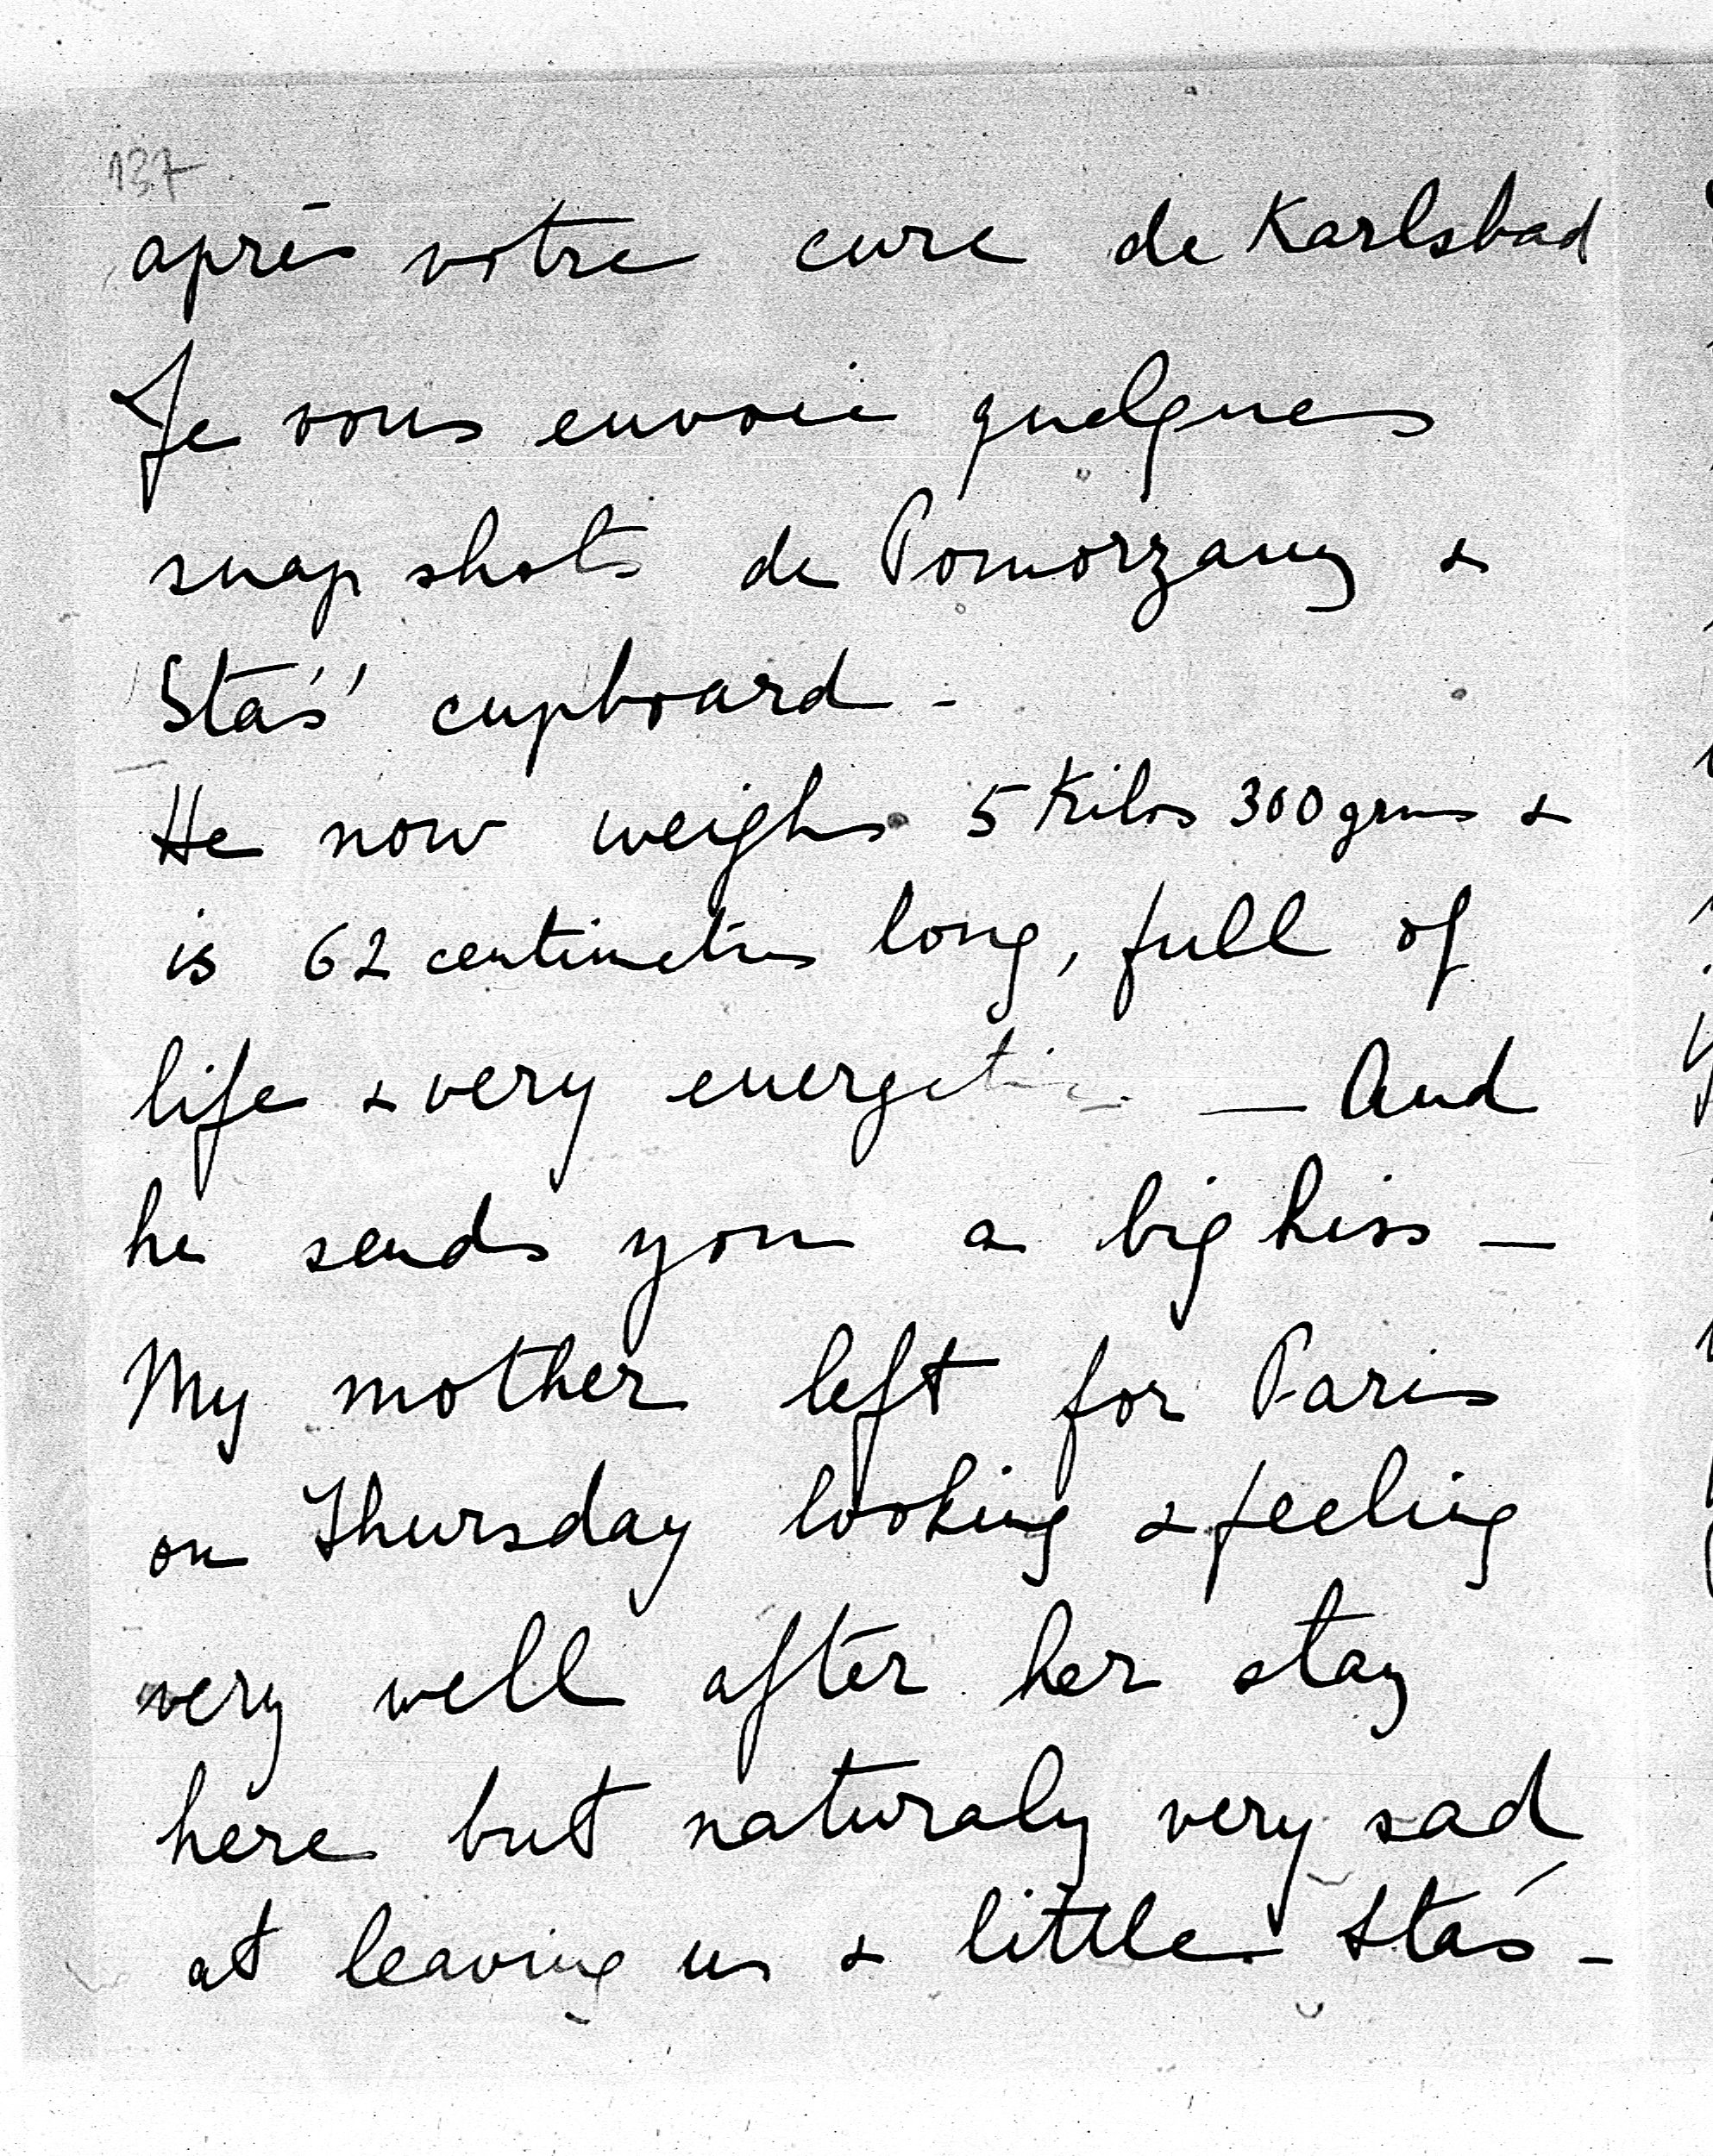 137
après votre cure de Karlsbad
Je vous envoie quelques
snap shots de Pomorzany &
Staś' cupboard -
He now weighs 5 Kilos 300 grms &
is 62 centimetres long, full of
life & very energetic — And
he sends you a big kiss —
My mother left for Paris
on Thursday looking & feeling
very well after her stay
here but naturaly very sad
at leaving us & little Staś -